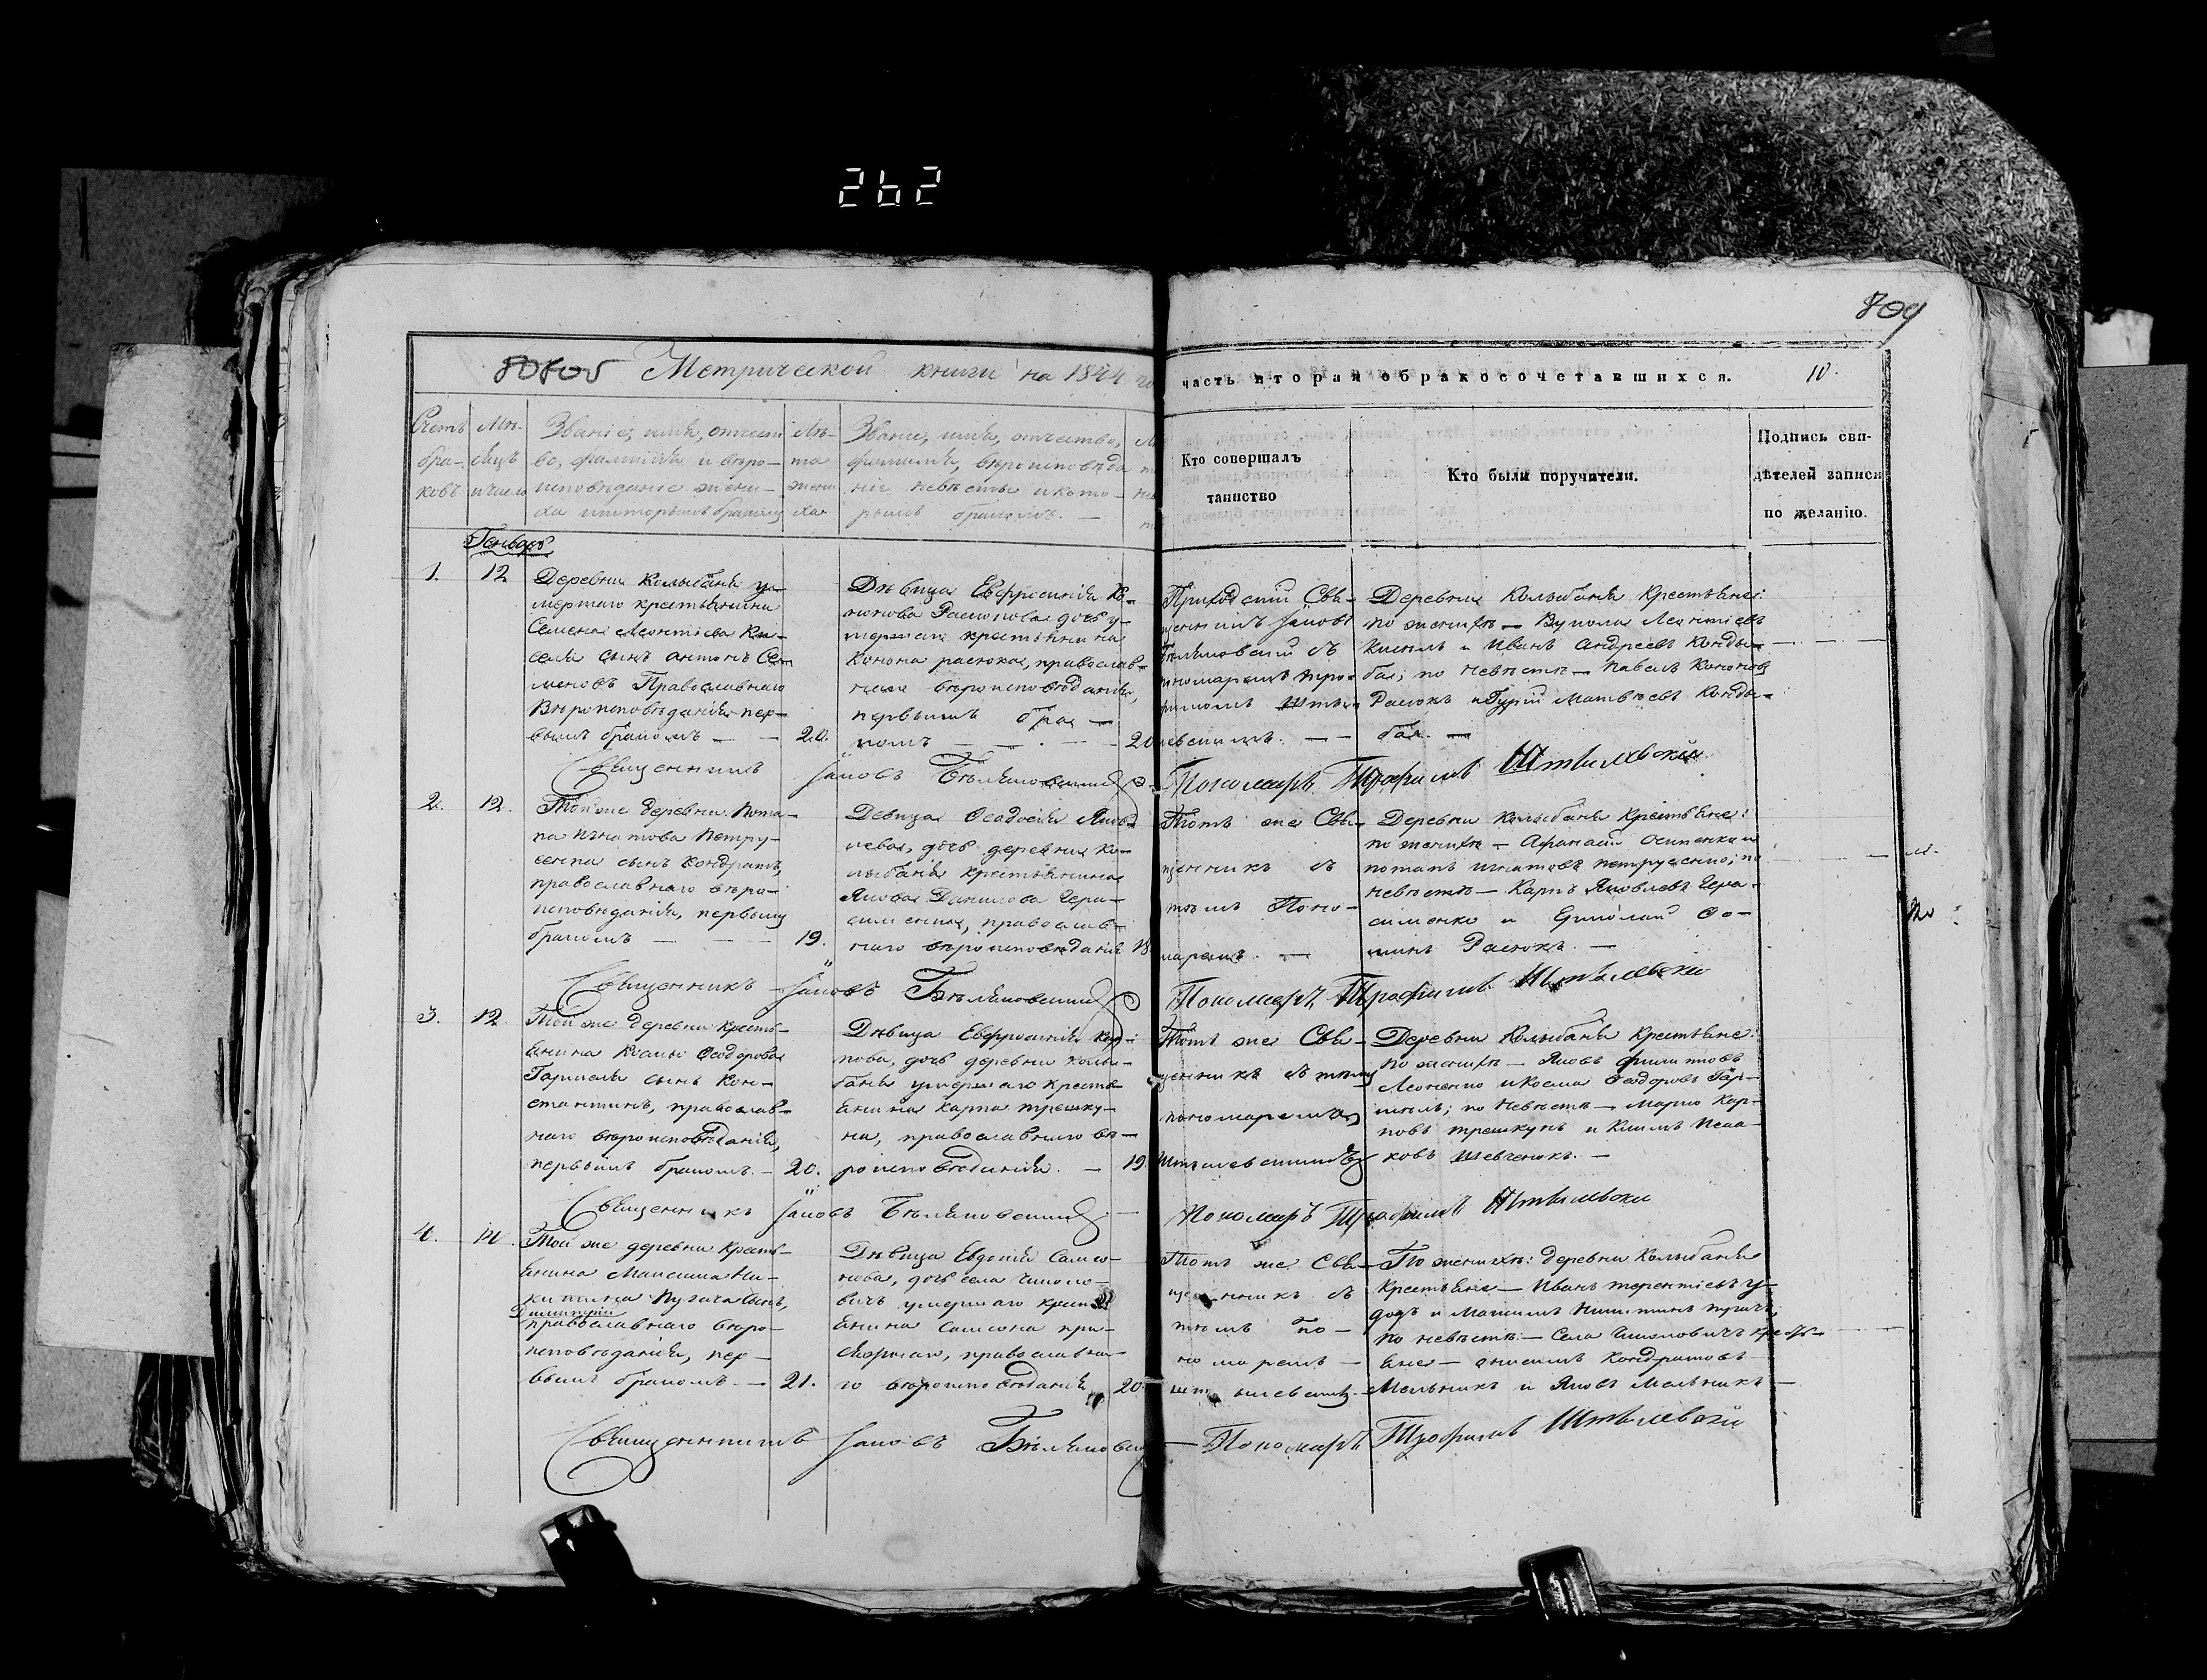 262
809
Метрической книги на 1844 го
часть вторая о бракосочетавшихся.
10.
Счетъ бра- ковъ
Мѣ- сяцъ и число
Званіе, имя, отчест во, фамилія и вѣро- исповѣданіе жени- ха и которымъ бракомъ
Лѣ- та жени ха
Званіе, имя, отчество, фамилія, вѣроисповѣда ніе невѣсты и кото- рымъ бракомъ. —
Кто совершалъ
таинство
Кто были поручители.
Подпись сви-
дѣтелей записи
по желанію.
Генварь
1. 12
Деревни Колыбанья у-
мершаго крестьянина
Семена Леонтіева Ки-
селя сынъ Антонъ Се-
меновъ Православнаго
Вѣроисповѣданія пер-
вымъ бракомъ — — 20.
Дѣвица Евфросинія Ко-
нонова Расюкова дочь у-
мершаго крестьянина
Конона Расюка, православ-
наго вѣроисповѣданія,
первымъ бра-
комъ — — 20
Приходскій Свя-
щенникъ Іаковъ
Бѣляновскій съ
пономаремъ Тро-
фимомъ
Деревни Колыбанья Крестьяне:
по женихѣ — Леонтіевъ
Кисель и Иванъ Андреевъ Конды-
ба; по невѣстѣ — Павелъ Кононовъ
Расюкъ и Гурій Матвѣевъ Конды-
ба. —
Священникъ Іаковъ Бѣляновскій
Пономарь Трофимъ
2. 12.
Той же деревни Пота-
па Игнатова Петру-
сенка сынъ Кондратъ,
православнаго вѣро-
исповѣданія, первымъ
бракомъ — — — 19.
Девица Ѳеодосія Яков
лева, дочь деревни Ко-
лыбанья крестьянина
Якова Данилова Гера-
сименка, православ-
наго вѣроисповѣданія 18
Тотъ же Свя-
щенникъ съ
тѣмъ Поно-
маремъ. —
Деревни Колыбанья Крестьяне:
по женихѣ — Афанасій Осипенко и
Потапъ Игнатовъ Петрусенко; по
невѣстѣ — Карпъ Яковлевъ Гера-
сименко и Ермолай Ѳо-
минъ Расюкъ. —
Священникъ Іаковъ Бѣляновскій
Пономарь Трофимъ
3. 12.
Той же деревни Кресть-
янина Космы Ѳеодорова
Гармеля сынъ Кон-
стантинъ, православ-
наго вѣроисповѣданія,
первымъ бракомъ. — 20.
Дѣвица Евфросинія Кар-
пова, дочь деревни Колы-
банья умершаго кресть-
янина Карпа Трешку-
на, православнаго вѣ-
роисповѣданія. — 19.
Тотъ же Свя-
щенникъ съ тѣмъ
пономаремъ
Деревни Колыбанья Крестьяне:
по женихѣ — Яковъ Филиповъ
Леоненко и Косма Ѳеодоровъ Гар-
мель; по невѣстѣ — Марко Кар-
повъ Трешкунъ и Климъ Исаа-
ковъ Шевченокъ. —
Священникъ Іаковъ Бѣляновскій
Пономарь Трофимъ
4. 14.
Той же деревни Кресть-
янина Максима Ни-
китина Пугача сынъ,
Димитрій
православнаго вѣро-
исповѣданія, пер-
вымъ бракомъ. — 21.
Дѣвица Евдокія Самсо-
нова, дочь села Чиколо-
вичъ умершаго кресть
янина Самсона При-
, православна-
го вѣроисповѣданія, 20.
Тотъ же Свя-
щенникъ съ
тѣмъ По-
номаремъ —
По женихѣ: деревни Колыбанья
Крестьяне — Иванъ Терентіевъ У-
додъ и Максимъ Никитинъ Пугачъ;
по невѣстѣ — Села Чиколовичъ Кресть-
яне — Анисимъ Кондратовъ
Мельникъ и Яковъ Мельникъ —
Священникъ Іаковъ
Пономарь Трофимъ